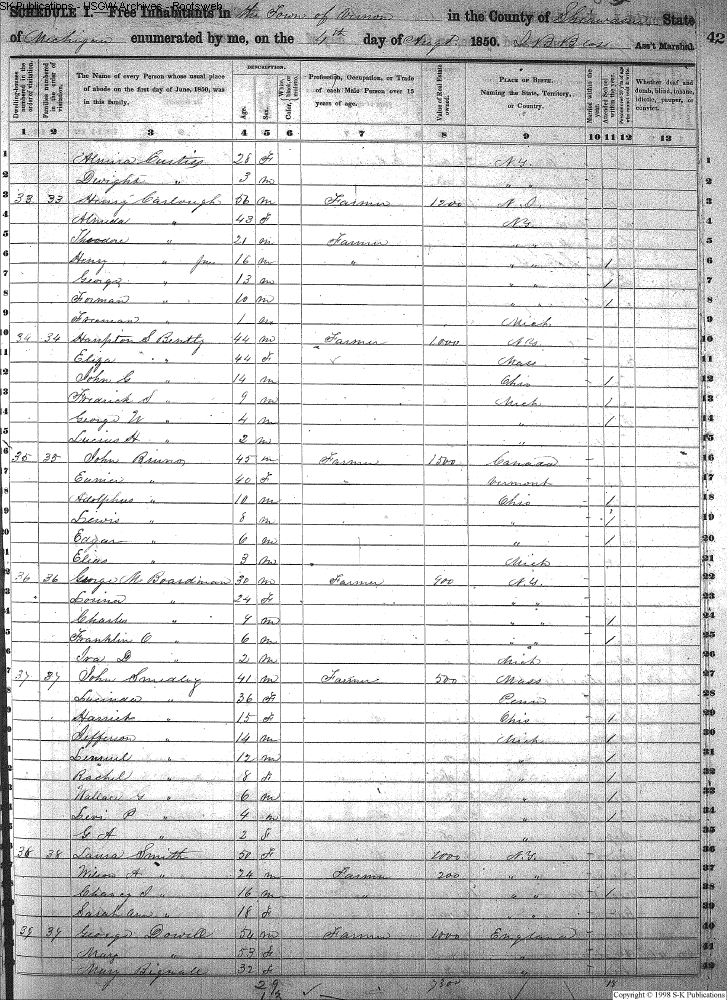 SK Publications - USGW Archives - Rootsweb
SCHEDULE I.—Free Inhabitants in the Town of Vernon in the County of Shiawassee State
of Michigan enumerated by me, on the 4th day of Augt 1850. Ass't Marshal. 42
Dwelling-houses numbered in the order of visitation. Families numbered in the order of visitation. The Name of every Person whose usual place of abode on the first day of June, 1850, was in this family. DESCRIPTION. Age. Sex. Color, White, black, or mulatto. Profession, Occupation, or Trade of each Male Person over 15 years of age. Value of Real Estate owned. PLACE OF BIRTH. Naming the State, Territory, or Country. Married within the year. Attended School within the year. Whether deaf and dumb, blind, insane, idiotic, pauper, or convict.
1 2 3 4 5 6 7 8 9 10 11 12 13
1 Almira Curtiss 28 F N.Y. 1
2 Dwight " 3 m " " 2
3 33 33 Henry Carlough 56 m Farmer 1200 N.J. 3
4 Almeda " 43 F N.Y. 4
5 Theodore " 21 m Farmer " " 5
6 Henry " Jun 16 m " " " 1 6
7 George " 13 m " " 1 7
8 Forman " 10 m " " 1 8
9 Freeman " 1 m Mich 9
10 34 34 Hampton S Bently 44 m Farmer 1000 N.Y. 10
11 Eliza " 44 F Mass 11
12 John G " 14 m Ohio 1 12
13 Fredrick S " 9 m Mich 1 13
14 George W " 4 m " 1 14
15 Lucius H " 2 m " 15
16 35 35 John 45 m Farmer 1500 Canada 16
17 " 40 F " Vermont 17
18 Adolphus " 10 m Ohio 1 18
19 Lewis " 8 m " 1 19
20 Edgar " 6 m " 1 20
21 Elias " 3 m Mich 21
22 36 36 George M Boardman 30 m Farmer 400 N.Y. 22
23 Lovina " 24 F " " 23
24 Charles " 9 m " " 1 24
25 Franklin O " 6 m " " 1 25
26 Ira D " 2 m Mich 26
27 37 37 John Smedley 41 m Farmer 500 Mass 27
28 Lucinda " 36 F Penn 28
29 Harriet " 15 F Ohio 1 29
30 Jefferson " 14 m Mich 1 30
31 Lemuel " 12 m " 1 31
32 Rachel " 8 F " 1 32
33 Wallace G " 6 m " 1 33
34 Levi P " 4 m " 1 34
35 G A " 2 F " 35
36 38 38 Laura Smith 50 F 2000 N.Y. 36
37 Wilson A " 24 m Farmer 200 " " 37
38 Chancy S " 16 m " " " 1 38
39 Sarah Ann " 18 F " 39
40 39 39 George Dowell 50 m Farmer 1000 England 40
41 Mary " 53 F " 41
42 Mary Bignall 32 F " 42
29
13
Copyright © 1998 S-K Publications